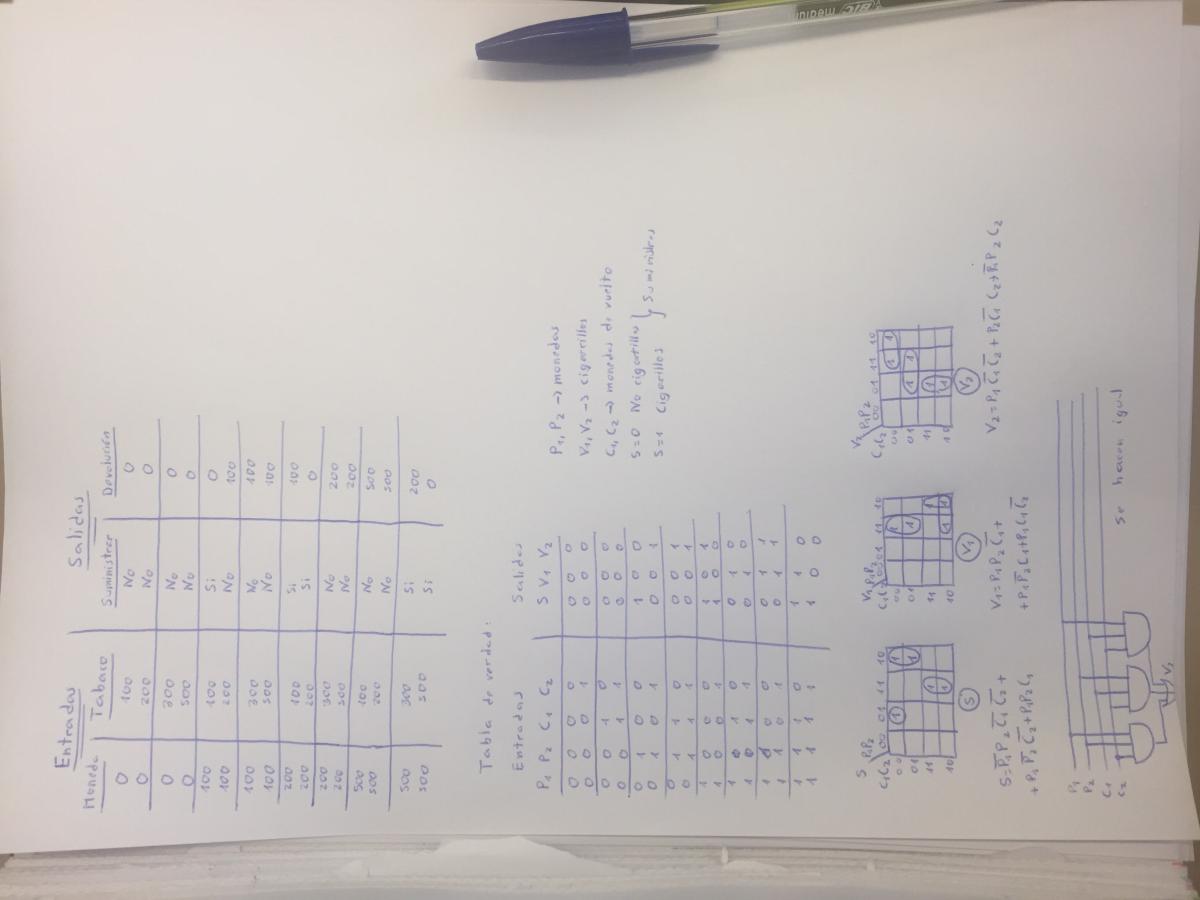 Entradas Salidas
Moneda Tabaco Suministrar Devolución
0 100 No 0
0 200 No 0
0 300 No 0
0 500 No 0
100 100 Si 0
100 200 No 100
100 300 No 100
100 500 No 100
200 100 Si 100
200 200 Si 0
200 300 No 200
200 500 No 200
500 100 No 500
500 200 No 500
500 300 Si 200
500 500 Si 0
Tabla de verdad:
Entradas Salidas
P1 P2 C1 C2 S V1 V2
0 0 0 0 0 0 0
0 0 0 1 0 0 0
0 0 1 0 0 0 0
0 0 1 1 0 0 0
0 1 0 0 1 0 0
0 1 0 1 0 0 1
0 1 1 0 0 0 1
0 1 1 1 0 0 1
1 0 0 0 1 0 1
1 0 0 1 1 0 0
1 0 1 0 0 1 0
1 0 1 1 0 1 0
1 1 0 0 0 1 1
1 1 0 1 0 1 1
1 1 1 0 1 1 0
1 1 1 1 1 0 0
P1, P2 → monedas
V1, V2 → cigarrillos
C1, C2 → monedas de vuelto
S=0 No cigarrillo } Suministros
S=1 Cigarillos
S P1P2
C1C2 00 01 11 10
00 1 1
01 1
11 1 1
10
S
S = P̅1 P2 C̅1 C̅2 +
+ P1 P̅2 C̅2 + P1 P2 C1
V1 P1P2
C1C2 00 01 11 10
00 1
01 1
11 1
10 1 1
V1
V1 = P1 P2 C̅1 +
+ P1 P̅2 C1 + P1 C1 C̅2
V2 P1P2
C1C2 00 01 11 10
00 1 1
01 1 1
11 1
10 1
V2
V2 = P1 C̅1 C̅2 + P2 C̅1 C2 + P̅1 P2 C2
P1
P2
C1
C2
V1
Se hacen igual
BIC medium